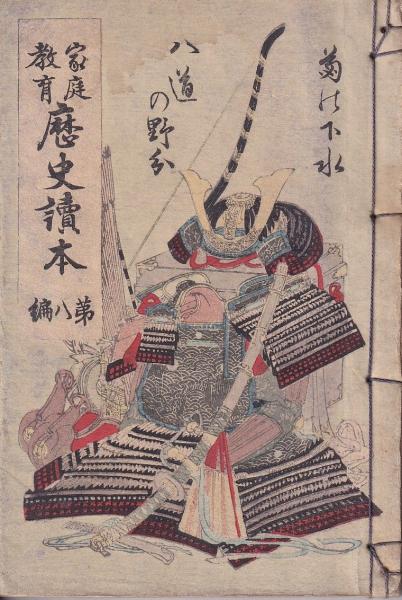 菊の下水
八道の野分
家庭
教育
歴史讀本
第八編